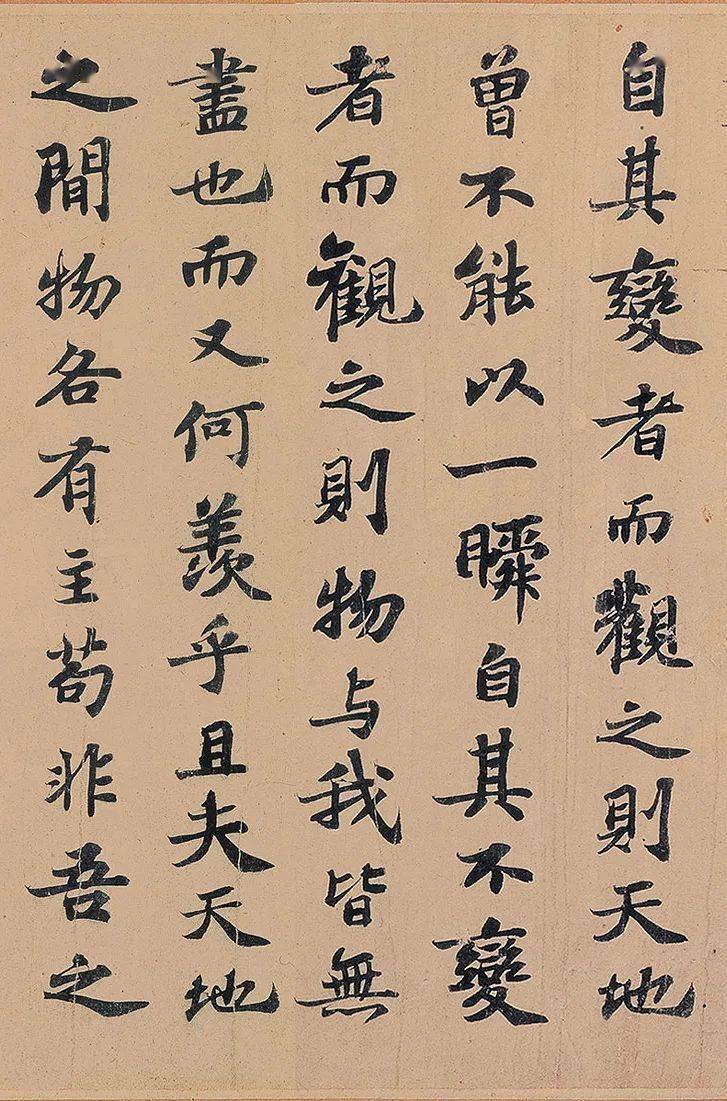 自其變者而觀之則天地
曾不能以一瞬自其不變
者而觀之則物與我皆無
盡也而又何羨乎且夫天地
之間物各有主苟非吾之